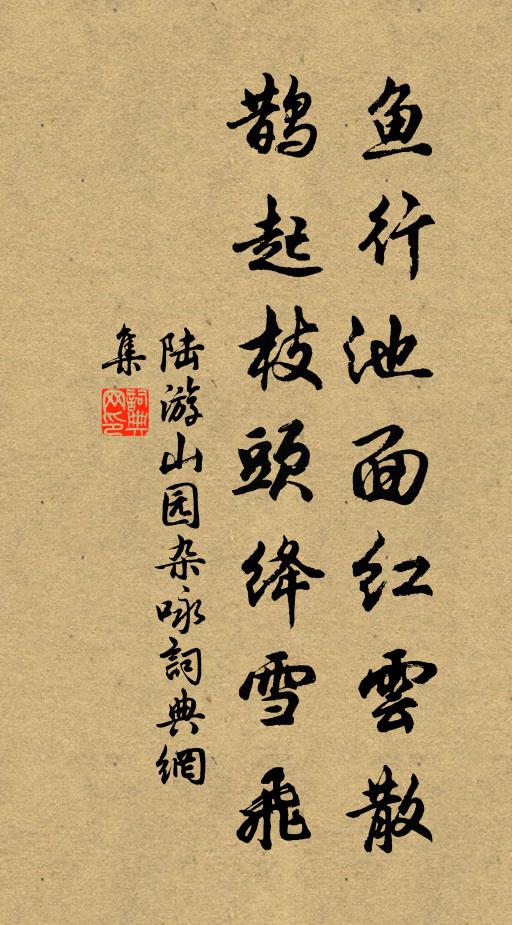 鱼行池面红雲散
鹊起枝頭绛雪飛
陆游山园杂咏詞典網
集
詞典
网印